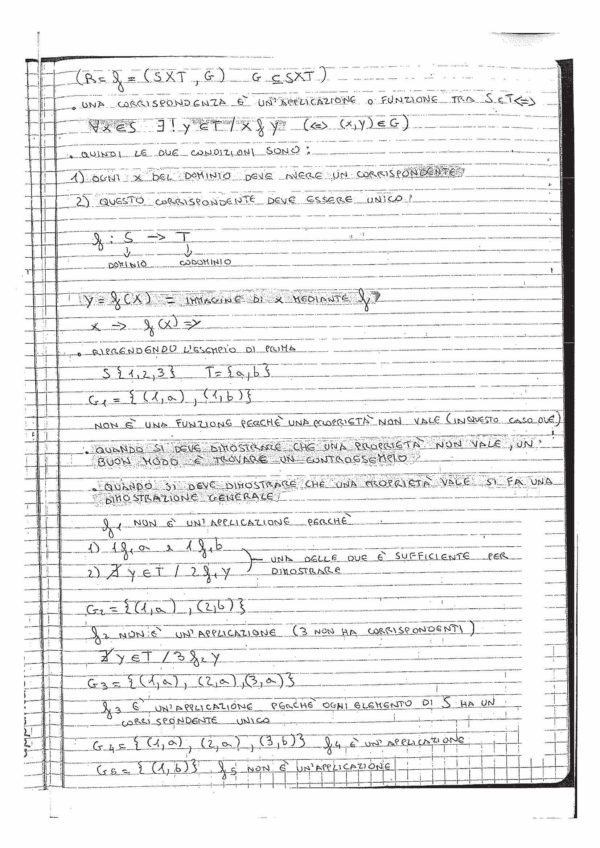 (R= f = (S×T, G)  G ⊆ S×T)
• UNA CORRISPONDENZA È UN'APPLICAZIONE O FUNZIONE TRA S E T <=>
∀x∈S ∃! y∈T / x f y (<=> (x,y)∈G)
• QUINDI LE DUE CONDIZIONI SONO:
1) OGNI X DEL DOMINIO DEVE AVERE UN CORRISPONDENTE
2) QUESTO CORRISPONDENTE DEVE ESSERE UNICO!
f : S -> T
↓ ↓
DOMINIO CODOMINIO
y = f(x) = IMMAGINE DI x MEDIANTE f
x -> f(x)=y
• RIPRENDENDO L'ESEMPIO DI PRIMA
S{1,2,3} T={a,b}
G1 = {(1,a), (1,b)}
NON È UNA FUNZIONE PERCHÈ UNA PROPRIETÀ NON VALE (IN QUESTO CASO DUE)
• QUANDO SI DEVE DIMOSTRARE CHE UNA PROPRIETÀ NON VALE, UN
BUON MODO È TROVARE UN CONTROESEMPIO
• QUANDO SI DEVE DIMOSTRARE CHE UNA PROPRIETÀ VALE SI FA UNA
DIMOSTRAZIONE GENERALE
f1 NON È UN'APPLICAZIONE PERCHÈ
1) 1 f1 a e 1 f1 b
2) ∄ y∈T / 2 f1 y
UNA DELLE DUE È SUFFICIENTE PER
DIMOSTRARE
G2 = {(1,a), (2,b)}
f2 NON È UN'APPLICAZIONE (3 NON HA CORRISPONDENTI)
∄ y∈T / 3 f2 y
G3 = {(1,a), (2,a), (3,a)}
f3 È UN'APPLICAZIONE PERCHÈ OGNI ELEMENTO DI S HA UN
CORRISPONDENTE UNICO
G4 = {(1,a), (2,a), (3,b)} f4 È UN'APPLICAZIONE
G5 = {(1,b)} f5 NON È UN'APPLICAZIONE